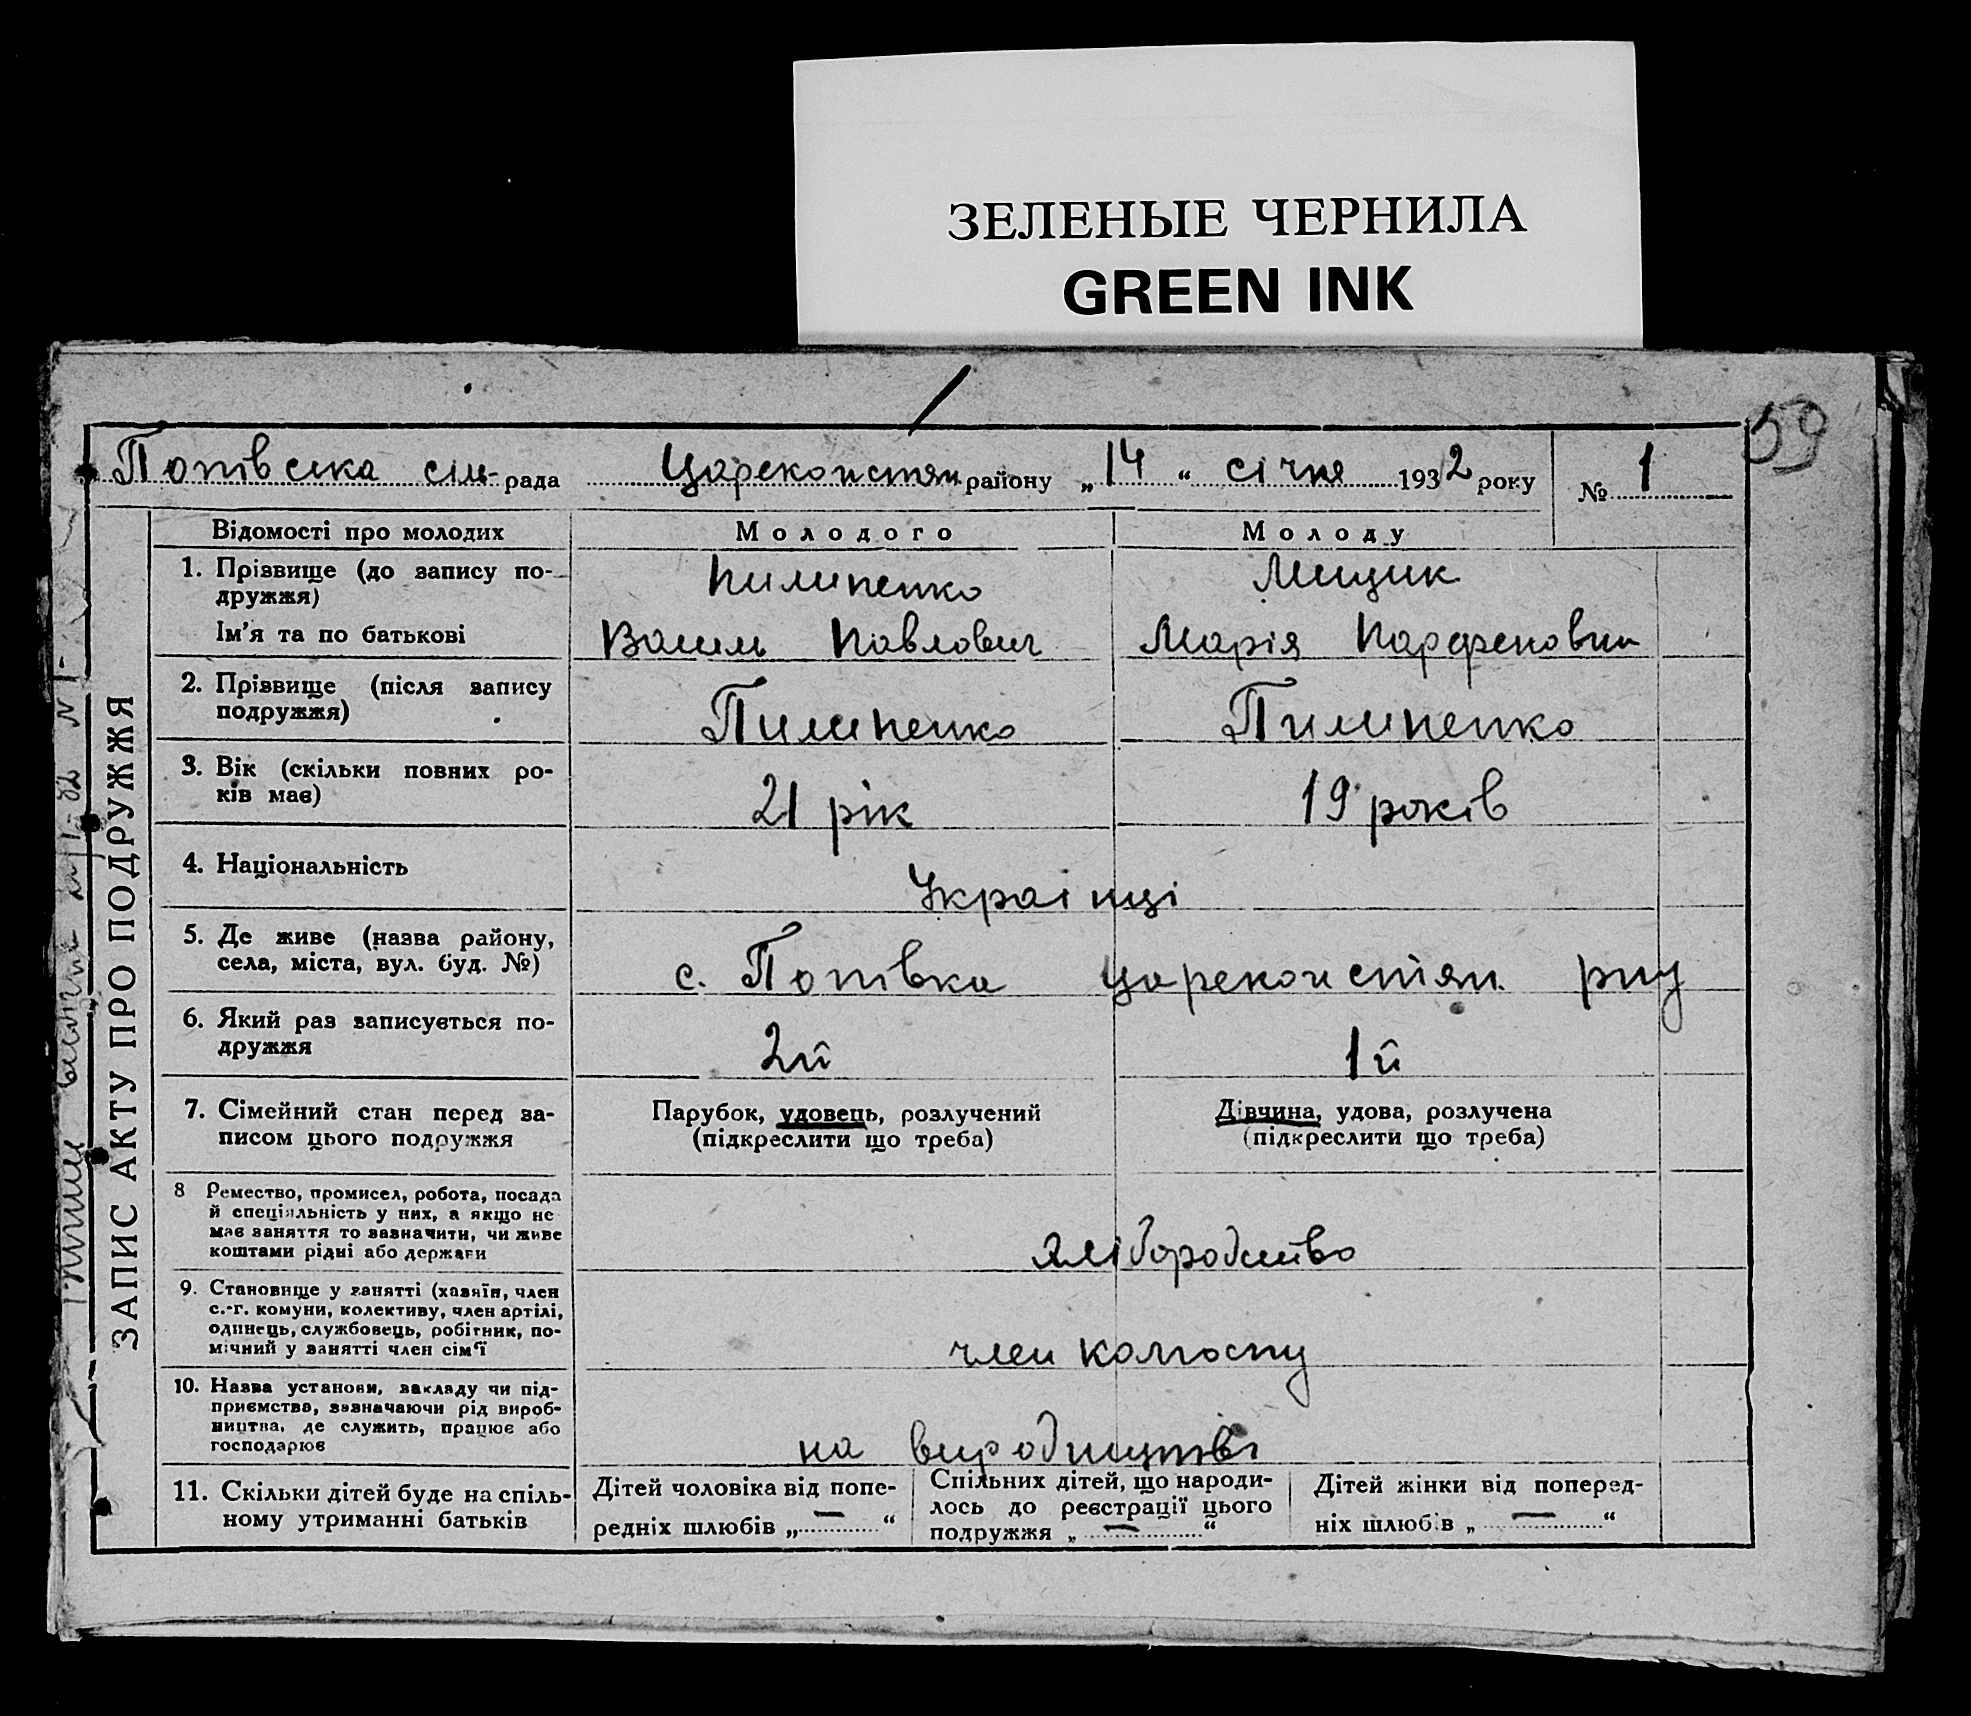 ЗЕЛЕНЫЕ ЧЕРНИЛА
GREEN INK
59
Попівська сіль-рада Царекопстян району „14“ січня 1932 року № 1
ЗАПИС АКТУ ПРО ПОДРУЖЖЯ
Відомості про молодих Молодого Молоду
1. Прізвище (до запису по- Пилипенко Мищик
дружжя)
Ім'я та по батькові Василь Павлович Марія Парфеновна
2. Прізвище (після запису
подружжя) Пилипенко Пилипенко
3. Вік (скільки повних ро-
ків має) 21 рік 19 років
4. Національність Украінці
5. Де живе (назва району,
села, міста, вул. буд. №) с. Попівка царекопстян. рну
6. Який раз записується по-
дружжя 2й 1й
7. Сімейний стан перед за- Парубок, удовець, розлучений Дівчина, удова, розлучена
писом цього подружжя (підкреслити що треба) (підкреслити що треба)
8 Ремество, промисел, робота, посада
й спеціяльність у них, а якщо не
має заняття то зазначити, чи живе
коштами рідні або держави хліборобство
9. Становище у занятті (хазяїн, член
с.-г. комуни, колективу, член артілі,
одинець, службовець, робітник, по-
мічний у занятті член сім'ї член колгоспу
10. Назва установи, закладу чи під-
приємства, зазначаючи рід вироб-
ництва, де служить, працює або
господарює на виробництві
11. Скільки дітей буде на спіль-
ному утриманні батьків
Дітей чоловіка від попе-
редніх шлюбів „—“
Спільних дітей, що народи-
лось до реєстрації цього
подружжя „—“
Дітей жінки від поперед-
ніх шлюбів „—“